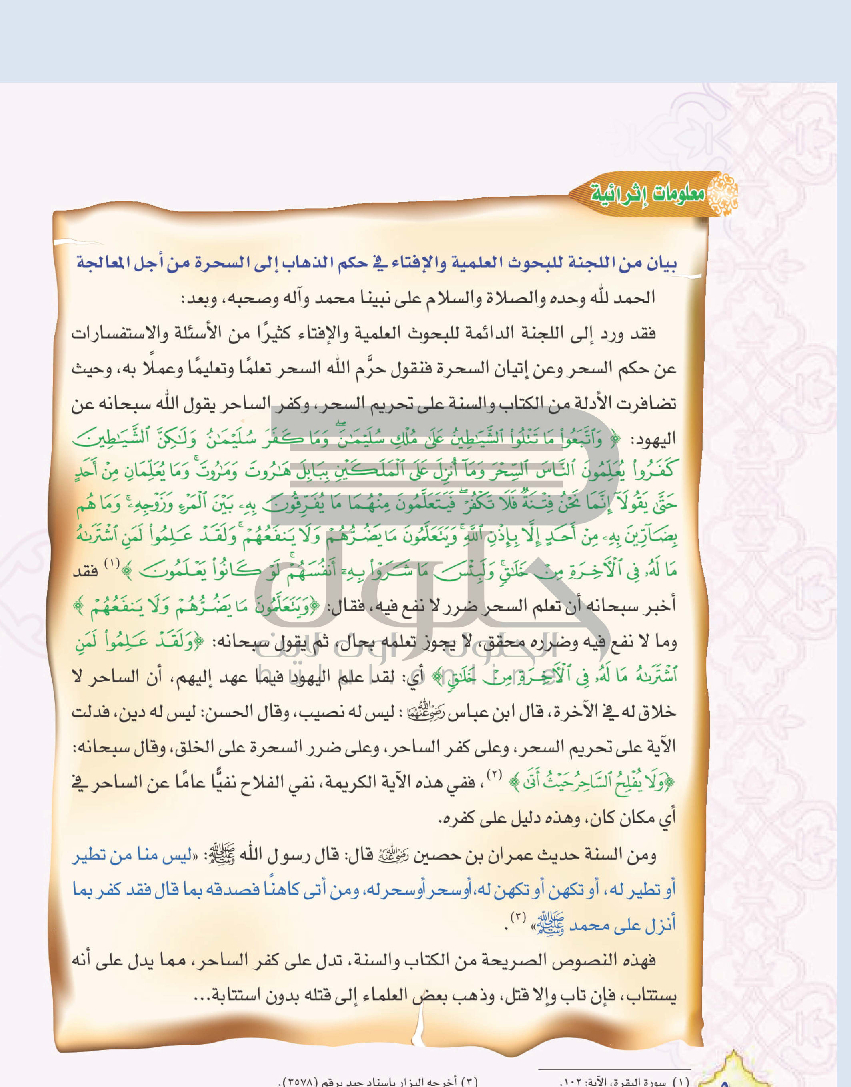 معلومات إثرائية
بيان من اللجنة للبحوث العلمية والإفتاء في حكم الذهاب إلى السحرة من أجل المعالجة
الحمد لله وحده والصلاة والسلام على نبينا محمد وآله وصحبه، وبعد:
فقد ورد إلى اللجنة الدائمة للبحوث العلمية والإفتاء كثيرًا من الأسئلة والاستفسارات
عن حكم السحر وعن إتيان السحرة فنقول حرَّم الله السحر تعلمًا وتعليمًا وعملًا به، وحيث
تضافرت الأدلة من الكتاب والسنة على تحريم السحر، وكفر الساحر يقول الله سبحانه عن
اليهود: ﴿ وَٱتَّبَعُواْ مَا تَتْلُواْ ٱلشَّيَٰطِينُ عَلَىٰ مُلْكِ سُلَيْمَٰنَۖ وَمَا كَفَرَ سُلَيْمَٰنُ وَلَٰكِنَّ ٱلشَّيَٰطِينَ
كَفَرُواْ يُعَلِّمُونَ ٱلنَّاسَ ٱلسِّحْرَ وَمَآ أُنزِلَ عَلَى ٱلْمَلَكَيْنِ بِبَابِلَ هَٰرُوتَ وَمَٰرُوتَۚ وَمَا يُعَلِّمَانِ مِنْ أَحَدٍ
حَتَّىٰ يَقُولَآ إِنَّمَا نَحْنُ فِتْنَةٌ فَلَا تَكْفُرْۖ فَيَتَعَلَّمُونَ مِنْهُمَا مَا يُفَرِّقُونَ بِهِۦ بَيْنَ ٱلْمَرْءِ وَزَوْجِهِۦۚ وَمَا هُم
بِضَآرِّينَ بِهِۦ مِنْ أَحَدٍ إِلَّا بِإِذْنِ ٱللَّهِۚ وَيَتَعَلَّمُونَ مَا يَضُرُّهُمْ وَلَا يَنفَعُهُمْۚ وَلَقَدْ عَلِمُواْ لَمَنِ ٱشْتَرَىٰهُ
مَا لَهُۥ فِى ٱلْءَاخِرَةِ مِنْ خَلَٰقٍۚ وَلَبِئْسَ مَا شَرَوْاْ بِهِۦٓ أَنفُسَهُمْۚ لَوْ كَانُواْ يَعْلَمُونَ ﴾(١) فقد
أخبر سبحانه أن تعلم السحر ضرر لا نفع فيه، فقال: ﴿وَيَتَعَلَّمُونَ مَا يَضُرُّهُمْ وَلَا يَنفَعُهُمْ ﴾
وما لا نفع فيه وضرره محقق، لا يجوز تعلمه بحال، ثم يقول سبحانه: ﴿وَلَقَدْ عَلِمُواْ لَمَنِ
ٱشْتَرَىٰهُ مَا لَهُۥ فِى ٱلْءَاخِرَةِ مِنْ خَلَٰقٍ﴾ أي: لقد علم اليهود فيما عهد إليهم، أن الساحر لا
خلاق له في الآخرة، قال ابن عباس رضي الله عنهما : ليس له نصيب، وقال الحسن: ليس له دين، فدلت
الآية على تحريم السحر، وعلى كفر الساحر، وعلى ضرر السحرة على الخلق، وقال سبحانه:
﴿وَلَا يُفْلِحُ ٱلسَّاحِرُ حَيْثُ أَتَىٰ ﴾ (٢)، ففي هذه الآية الكريمة، نفي الفلاح نفيًّا عامًا عن الساحر في
أي مكان كان، وهذه دليل على كفره.
ومن السنة حديث عمران بن حصين رضي الله عنه قال: قال رسول الله ﷺ: «ليس منا من تطير
أو تطير له، أو تكهن أو تكهن له، أو سحر أو سحر له، ومن أتى كاهنًا فصدقه بما قال فقد كفر بما
أنزل على محمد ﷺ» (٣).
فهذه النصوص الصريحة من الكتاب والسنة، تدل على كفر الساحر، مما يدل على أنه
يستتاب، فإن تاب وإلا قتل، وذهب بعض العلماء إلى قتله بدون استتابة...
حلول
الحلول اون لاين
hulul.online
(١) سورة البقرة، الآية: ١٠٢.
(٣) أخرجه البزار بإسناد جيد برقم (٣٥٧٨).